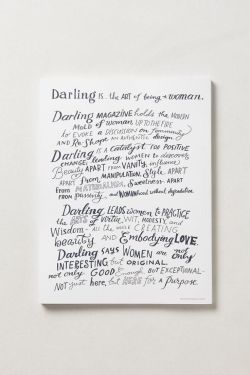 Darling is... the ART of being a woman.
Darling MAGAZINE holds the WOMAN
MOLD of woman UP TO THE FIRE
to EVOKE a DISCUSSION on femininity
AND Re-Shape an AUTHENTIC design
Darling is a Catalyst FOR POSITIVE
CHANGE leading women to discover
Beauty APART from VANITY, influence
APART from MANIPULATION, Style APART
From MATERIALISM, Sweetness APART
FROM passivity, and WOMANhood without degradation
Darling LEADS women to PRACTICE
the ARTS of virtue, WIT, MODESTY, and
Wisdom all the while CREATING
beauty AND Embodying LOVE.
Darling says WOMEN are not only
INTERESTING but ORIGINAL.
not only GOOD Enough but EXCEPTIONAL-
NOT just here, but HERE for a Purpose.